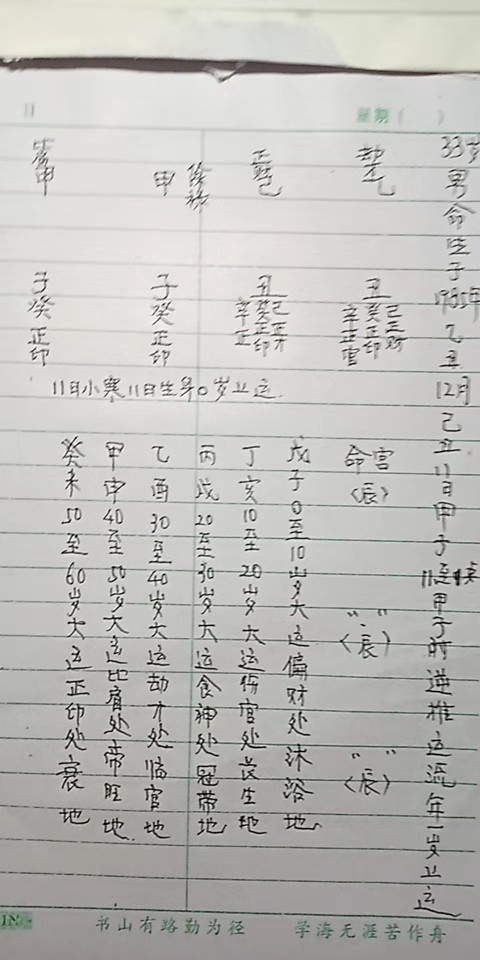 11
星期( )
33岁男命生于1985年乙丑12月己丑11日甲子11至1点甲子时逆推运流年一岁上运
劫乙
正财己
甲
比肩甲
丑
己正财
癸正印
辛正官
丑
己正才
癸正印
辛正
子癸正印
子癸正印
11日小寒11日生年0岁上运.
命宫〈辰〉
" "〈辰〉
" "〈辰〉
戊子0至10岁大运偏财处沐浴地
丁亥10至20岁大运伤官处长生地
丙戌20至30岁大运食神处冠带地
乙酉30至40岁大运劫才处临官地
甲申40至50岁大运比肩处帝旺地.
癸未50至60岁大运正印处衰地
书山有路勤为径 学海无涯苦作舟